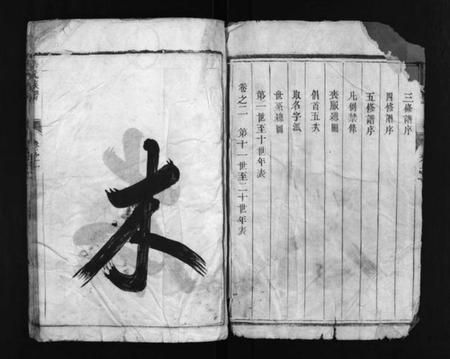 三修譜序
四修譜序
五修譜序
凡例禁條
喪服總圖
俱首五夭
取名字派
世系總圖
第一世至十世年表
卷之二 第十一世至二十世年表
木